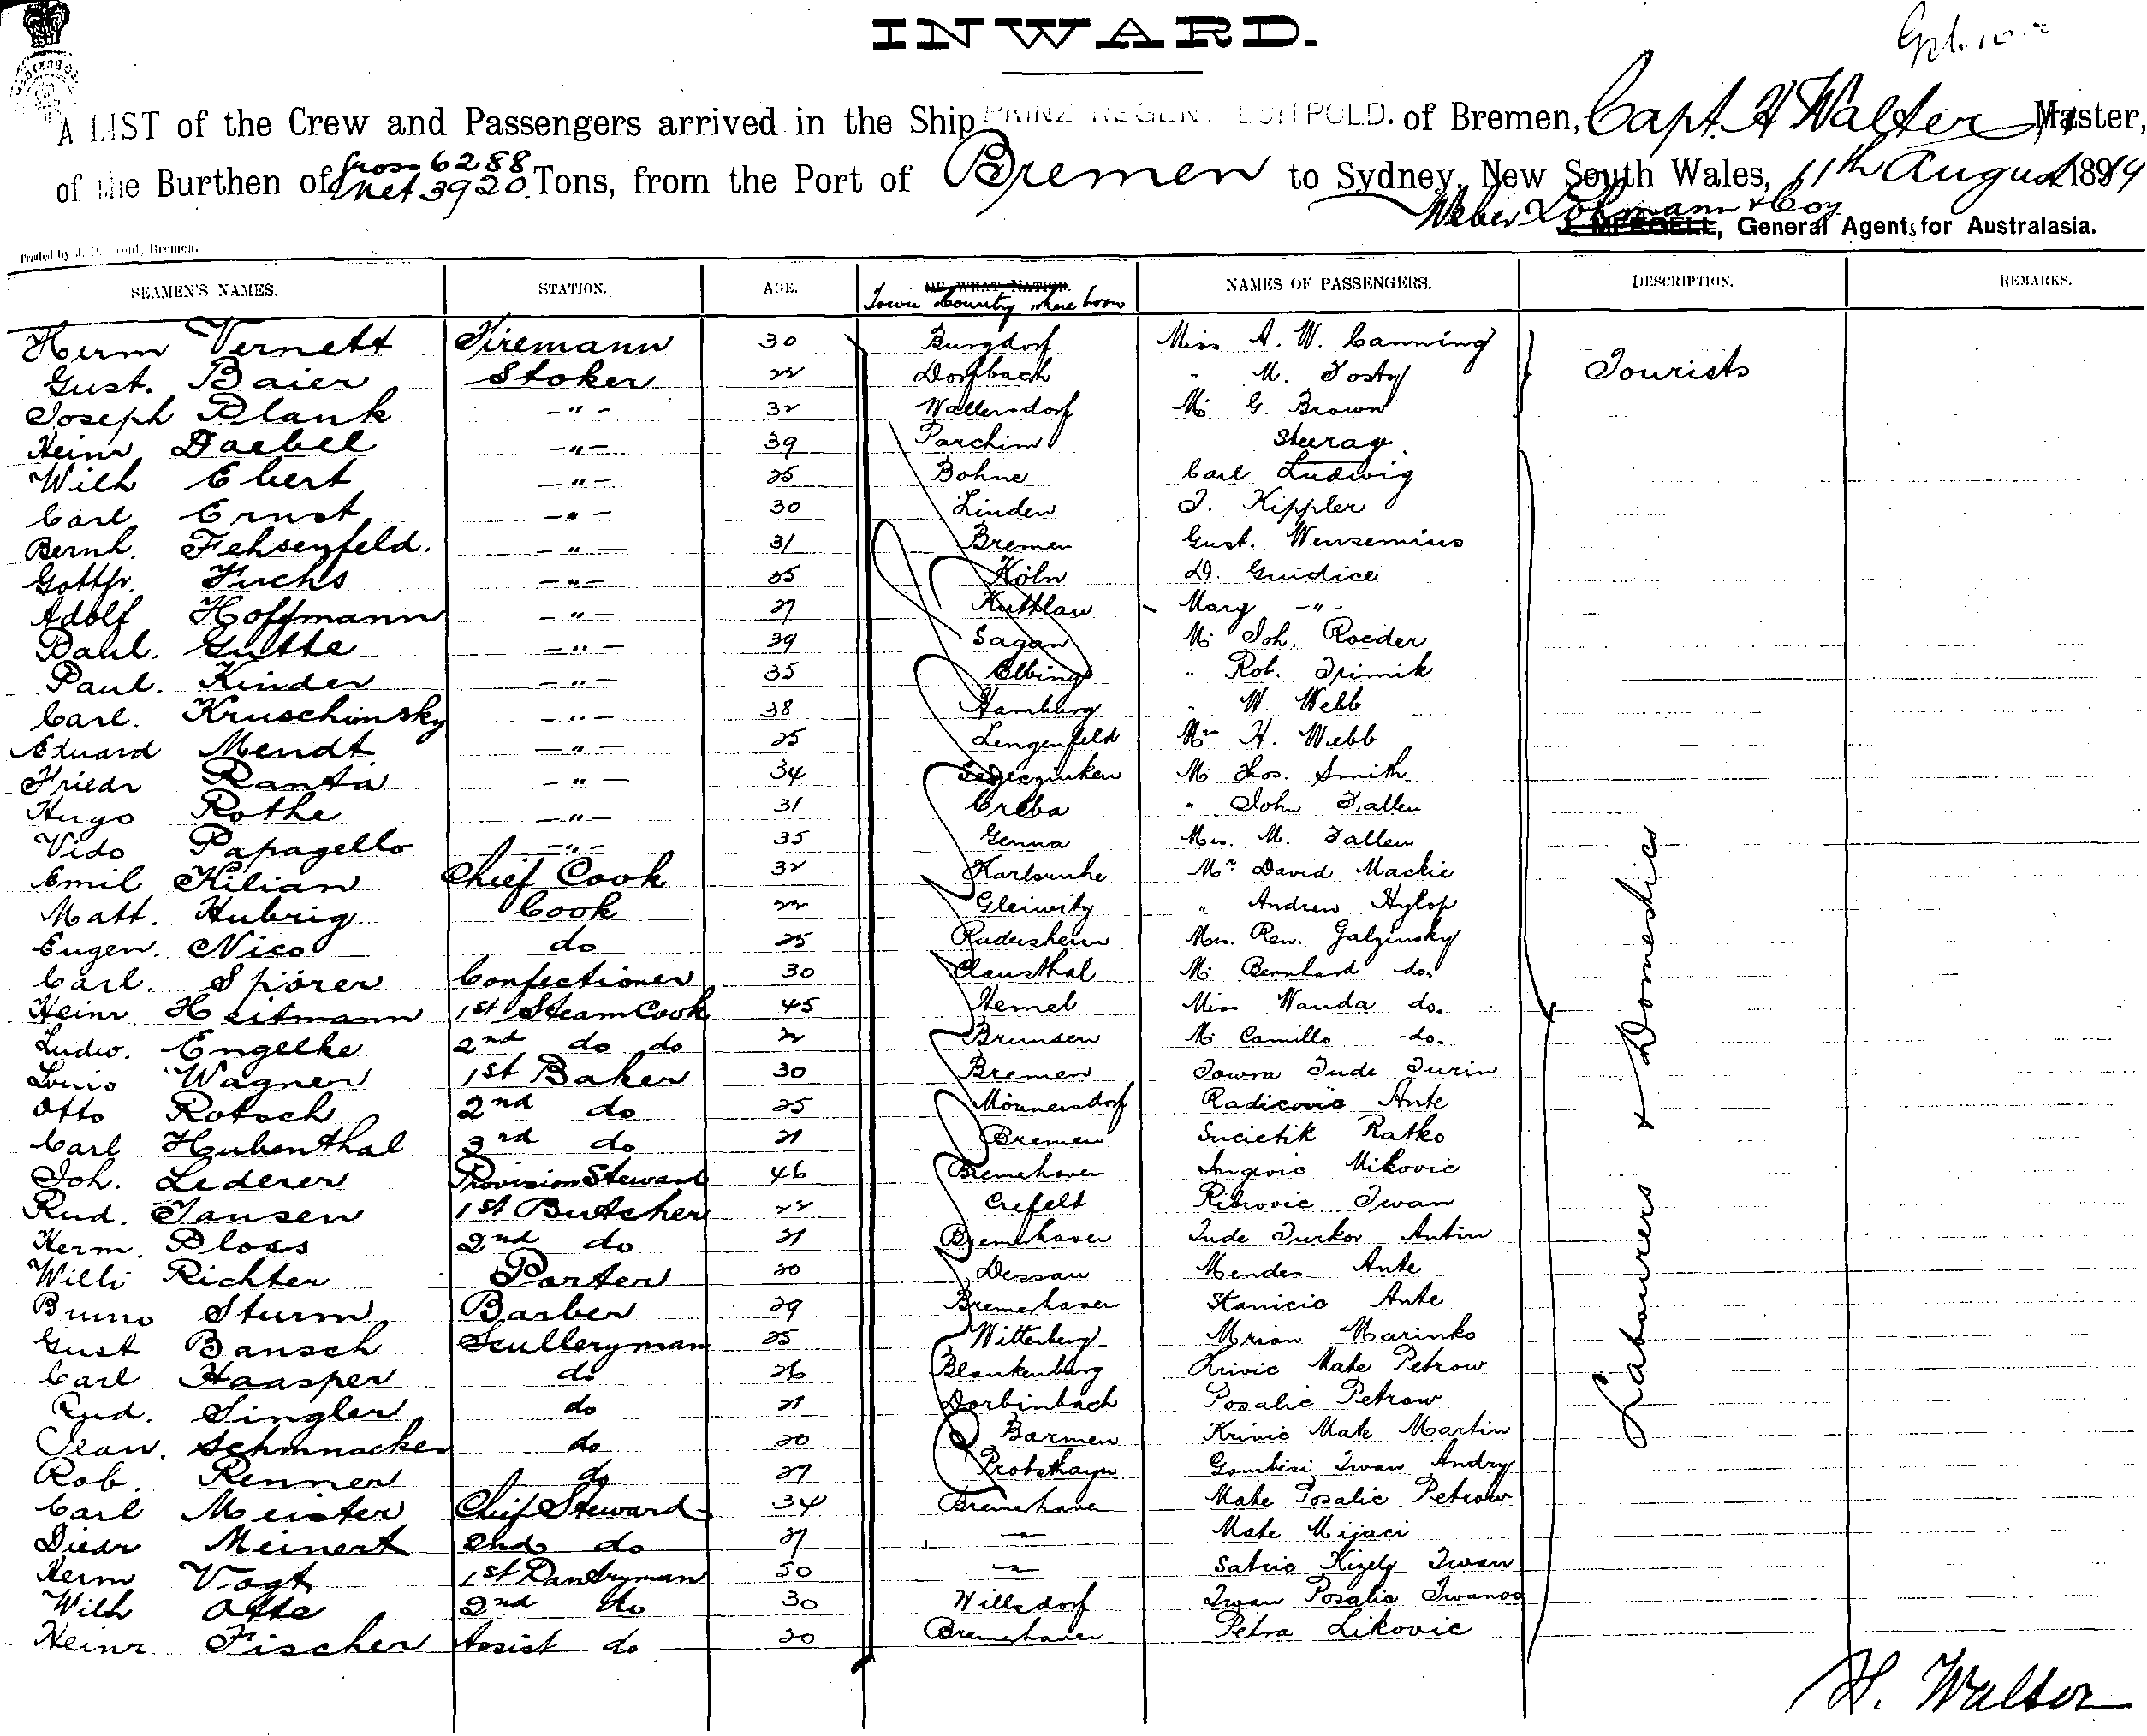 INWARD.
A LIST of the Crew and Passengers arrived in the Ship PRINZ REGENT LUITPOLD. of Bremen, Capt. H Walter Master,
of the Burthen of gross 6288 Net 3920 Tons, from the Port of Bremen to Sydney, New South Wales, 11th August 1894
Weber Lohmann & Coy
General Agents for Australasia.
SEAMEN'S NAMES. STATION. AGE. OF WHAT NATION Town & Country where born NAMES OF PASSENGERS. DESCRIPTION. REMARKS.
Herm Vernett Firemann 30 Burgdorf Miss A. W. Canning
Gust. Baier Stoker 22 Dorfbach " M. Tosty Tourists
Joseph Plank -"- 32 Wallersdorf Mr G. Brown
Heinr Daebel -"- 39 Parchim Steerage
Wilh Ebert -"- 25 Bohne Carl Ludwig
Carl Ernst -"- 30 Linden J. Kippler
Bernh. Fehsenfeld. -"- 31 Bremen Gust.
Gottfr. Fuchs -"- 35 Köln D. Guidice
Adolf Hoffmann -"- 27 Kuttlau Mary -"-
Paul. Gutte -"- 39 Sagan Mr Joh. Roeder
Paul. Kinder -"- 35 Elbing " Rob.
Carl. Kruschinsky -"- 38 Hamburg " W. Webb
Eduard Mendt -"- 25 Lengenfeld Mrs H. Webb
Friedr Ranta -"- 34 Mr Thos. Smith
Hugo Rothe -"- 31 Creba " John Fallen
Vido Papagello -"- 35 Genua Mrs. M. Fallen
Emil Kilian Chief Cook 32 Karlsruhe Mr David Mackie
Matt. Hubrig Cook 22 Gleiwitz " Andrew Hylop
Eugen. Nico do 25 Radersheim Mrs. Rev. Galzinsky
Carl. Spörer Confectioner 30 Clausthal Mr Bernhard do.
Heinr Heitmann 1st Steam Cook 45 Hemel Miss Wanda do.
Ludw. Engelke 2nd do do 22 Brunsen Mr Camillo do.
Louis Wagner 1st Baker 30 Bremen Jowra Jude Jurin
Otto Rotsch 2nd do 25 Mönnersdorf Radicovic Ante
Carl Hubenthal 3rd do 21 Bremen Sucietik Ratko
Joh. Lederer Provision Steward 46 Bremerhaven Mikovic
Rud. Jansen 1st Butcher 22 Crefeld Ribrovic Iwan
Herm. Ploss 2nd do 21 Bremerhaven Jude Jurkov Antin
Willi Richter Porter 20 Dessau Mendes Ante
Bruno Sturm Barber 29 Bremerhaven Stanicic Ante
Gust Bansch Sculleryman 25 Wittenberg Mrian Marinko
Carl Haasper do 26 Blankenburg Krivic Mate Petrow
Rud. Singler do 21 Dorbinbach Posalic Petrow
Jean. Schmnacker do 20 Barmen Krivic Mate Martin
Rob. Renner do 27 Probsthayn Gombisi Iwan Andry
Carl Meister Chief Steward 34 Bremerhaven Mate Posalic Petrow
Diedr Meinert 2nd do 27 -"- Mate Mijaci
Herm Vogt 1st Pantryman 50 -"- Satric Kizely Iwan
Wilh Otte 2nd do 30 Willsdorf Iwan Posalic Iwanow
Heinr Fischer Assist do 20 Bremerhaven Petra Likovic
Labourers & Domestics
H. Walter